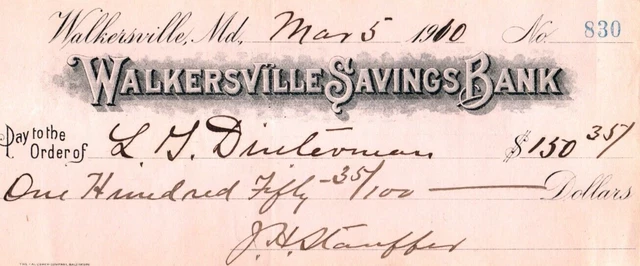 Walkersville, Md. Mar 5 1910 No. 830
WALKERSVILLE SAVINGS BANK
Pay to the Order of L. G. Dinterman $150 35/
One Hundred Fifty -35/100 Dollars
J. H. Stauffer